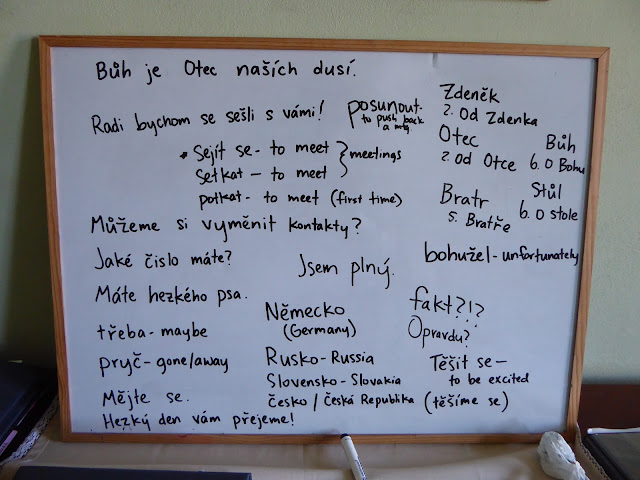 Bůh je Otec naších dusí.
Radi bychom se sešli s vámi!
posunout-
to push back
a mtg
Sejít se - to meet
Setkat - to meet
meetings
potkat - to meet (first time)
Můžeme si vyměnit kontakty?
Jaké čislo máte?
Jsem plný.
Máte hezkého psa.
třeba - maybe
pryč - gone/away
Mějte se.
Hezký den vám přejeme!
Německo
(Germany)
Rusko - Russia
Slovensko - Slovakia
Česko / Česká Republika
Zdeněk
2. Od Zdenka
Otec
2 Od Otce
Bůh
6. O Bohu
Bratr
5. Bratře
Stůl
6. O stole
bohužel - unfortunately
fakt?!?
Opravdu?
Těšit se -
to be excited
(těšíme se)